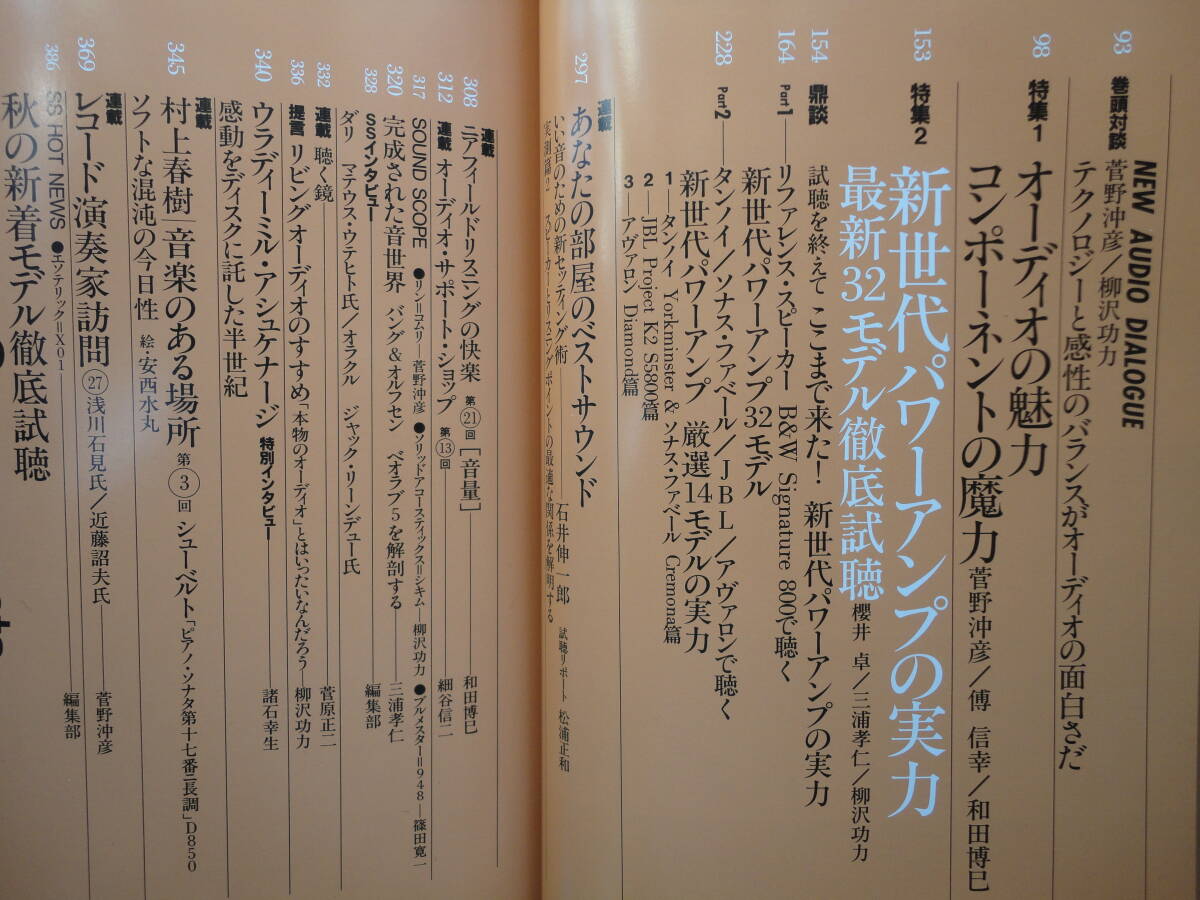 93
巻頭対談
NEW AUDIO DIALOGUE
菅野沖彦／柳沢功力
テクノロジーと感性のバランスがオーディオの面白さだ
98
特集1
オーディオの魅力
コンポーネントの魔力
菅野沖彦／傅 信幸／和田博巳
153
特集2
新世代パワーアンプの実力
最新32モデル徹底試聴
櫻井 卓／三浦孝仁／柳沢功力
154
鼎談
試聴を終えて ここまで来た! 新世代パワーアンプの実力
164
Part1
リファレンス・スピーカー B&W Signature 800で聴く
新世代パワーアンプ32モデル
228
Part2
タンノイ／ソナス・ファベール／JBL／アヴァロンで聴く
新世代パワーアンプ 厳選14モデルの実力
1—タンノイ Yorkminster & ソナス・ファベール Cremona篇
2—JBL Project K2 S5800篇
3—アヴァロン Diamond篇
297
連載
あなたの部屋のベストサウンド
いい音のための新セッティング術
石井伸一郎 試聴リポート 松浦正和
実測篇2 スピーカーとリスニングポイントの最適な関係を解明する
308
連載
ニアフィールドリスニングの快楽 第21回［音量］
和田博巳
312
連載
オーディオ・サポート・ショップ 第13回
細谷信二
317
SOUND SCOPE
●リン=コムリ—菅野沖彦 ●ソリッドアコースティックス=シキム—柳沢功力 ●ブルメスター=948—篠田寛一
320
完成された音世界 バング&オルフセン ベオラブ5を解剖する
三浦孝仁
328
SSインタビュー
編集部
ダリ マテウス・ウテヒト氏／オラクル ジャック・リーンデュー氏
332
連載
聴く鏡
菅原正二
336
提言
リビングオーディオのすすめ「本物のオーディオ」とはいったいなんだろう
柳沢功力
340
ウラディーミル・アシュケナージ 特別インタビュー
諸石幸生
感動をディスクに託した半世紀
345
連載
村上春樹 音楽のある場所 第3回 シューベルト「ピアノ・ソナタ第十七番ニ長調」D850
ソフトな混沌の今日性 絵・安西水丸
369
連載
レコード演奏家訪問 27 浅川石見氏／近藤詔夫氏
菅野沖彦
386
SS HOT NEWS ●エソテリック=X01
編集部
秋の新着モデル徹底試聴